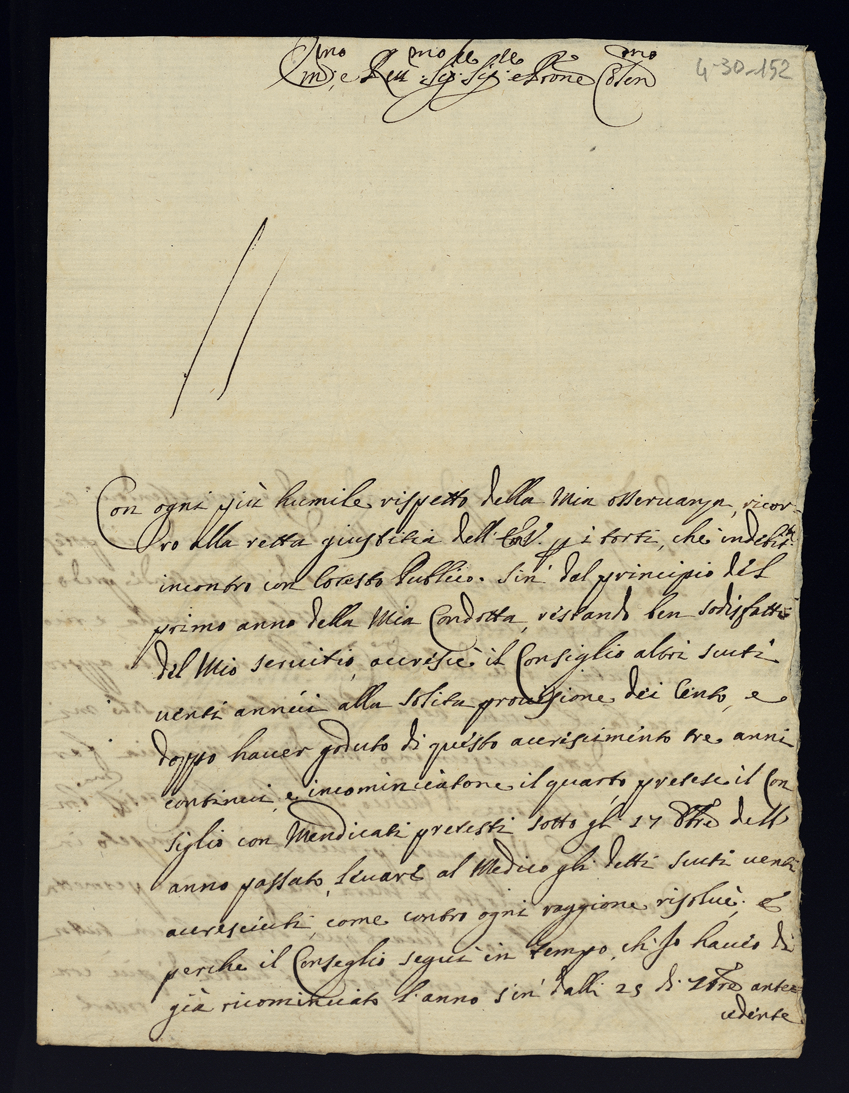 Em.mo e Re.mo Sig.r Sig.r e Prone Colen.mo
4-30-152
Con ogni più humile rispetto della mia osseruanza, ricor-
ro alla retta giustitia dell' i torti, che indebit.te
incontro con cotesto Publico. Sin' dal principio del
primo anno della mia Condotta, restando ben sodisfatti
del mio seruitio, accrescè il Consiglio altri scuti
uenti annui alla solita prouisione dei Cento, e
doppo hauer goduto di questo accrescimento tre anni
continui, e incominciatone il quarto, pretese il Con
siglio con mendicati pretesti sotto gli 17 8bre dell'
anno passato, leuare al Medico gli detti scuti uenti
accresciuti, come contro ogni raggione risoluè; e
perche il Conseglio seguì in tempo, ch'Io haueo di
già ricominciato l'anno sin' dalli 25 di 7bre ante=
cedente